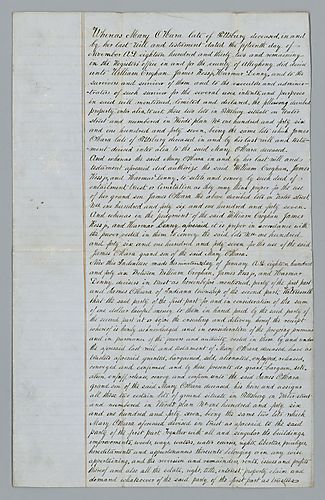 Whereas Mary O'Hara late of Pittsburg deceased, in and
by her last Will and testament dated the fifteenth day of
November A.D. eighteen hundred and thirty two and remaining
in the Registers office in and for the county of Allegheny did devise
unto William Croghan, James Ross, Harmar Denny, and to the
survivors and survivor of them and to the heirs and adminis-
trators of such survivor for the several uses, intents, and purposes
in said will mentioned, limited and declared, the following devised
property, inter alia, to wit, those two lots in Pittsburg situate in Water
street and numbered in Woods plan No one hundred and forty six
and one hundred and forty seven, being the same lots which James
O'Hara late of Pittsburg deceased in and by his last will and testa-
ment devised inter alia to the said Mary O'Hara deceased.
And whereas the said Mary O'Hara in and by her last will and
testament aforesaid did authorize the said William Croghan, James
Ross, and Harmar Denny, to settle and convey by such deed of
Trust or limitation as they may think proper to the use
of her grand son James O'Hara the above divided lots in Water street
No one hundred and forty six and one hundred and forty seven.
And whereas in the judgement of the said William Croghan James
Ross, and Harmar Denny, aforesaid, it is proper in accordance with
the power vested in them to convey the said lots No one hundred
and forty six and one hundred and forty seven to the use of the said
James O'Hara grand son of the said Mary O'Hara.
Now this Indenture made the day of January A.D. eighteen hundred
and forty six Between William Croghan, James Ross, and Harmar
Denny, devisees in trust as heretofore mentioned, party of the first part
and James O'Hara of Indiana Township of the second part, Witnesseth
that the said party of the first part for and in consideration of the sum
of one dollar lawful money to them in hand paid by the said party of
the second part at or before the ensealing and delivery hereof the receipt
whereof is hereby acknowledged and in consideration of the foregoing premises
and in pursuance of the power and authority vested in them by and under
the aforesaid last will and testament of Mary O'Hara deceased, have as
trustees aforesaid granted, bargained, sold, alienated, enfeoffed, released,
conveyed and confirmed and by these presents do grant, bargain, sell,
alien, enfeoff, release, convey, and confirm unto the said James O'Hara
grand son of the said Mary O'Hara deceased his heirs and assigns
all those two certain lots of ground situate in Pittsburg in Water street
and numbered in Woods plan No one hundred and forty six
and one hundred and forty seven, being the same two lots which
Mary O'Hara aforesaid devised in trust as aforesaid to the said
party of the first part. Together with all and singular the buildings
improvements, woods, ways, waters, water courses, rights, liberties, privileges,
hereditaments and appurtenances thereunto belonging or in any wise
appertaining, and the reversion and remainders, rents, issues and profits
thereof and also all the estate, right, title, interest, property, claim and
demand whatsoever of the said party of the first part as trustees